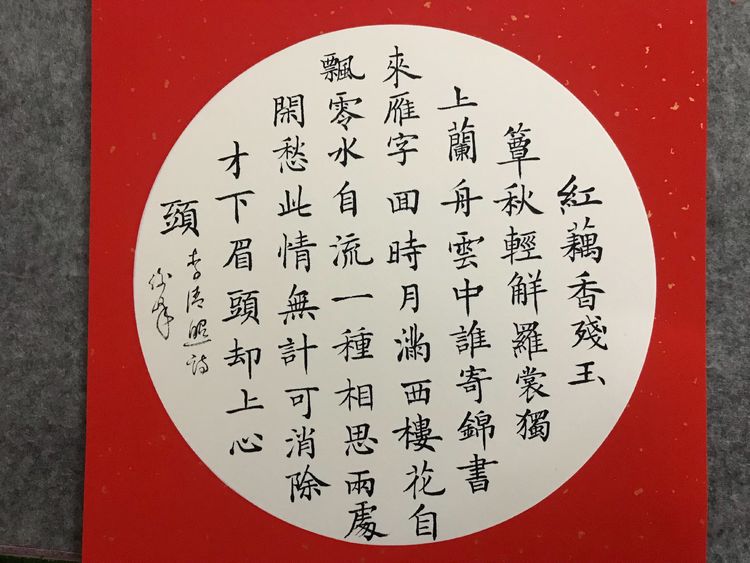 紅藕香殘玉
簟秋輕觧羅裳獨
上蘭舟雲中誰寄錦書
來雁字囬時月滿西樓花自
飄零水自流一種相思兩處
閑愁此情無計可消除
才下眉頭却上心
頭
李清照詩